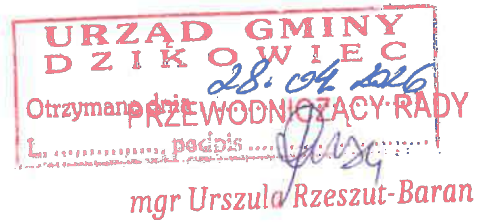 URZĄD GMINY
DZIKOWIEC
28. 04. 2026
Otrzymano dnia
PRZEWODNICZĄCY RADY
L. ............ podpis ............
mgr Urszula Rzeszut-Baran